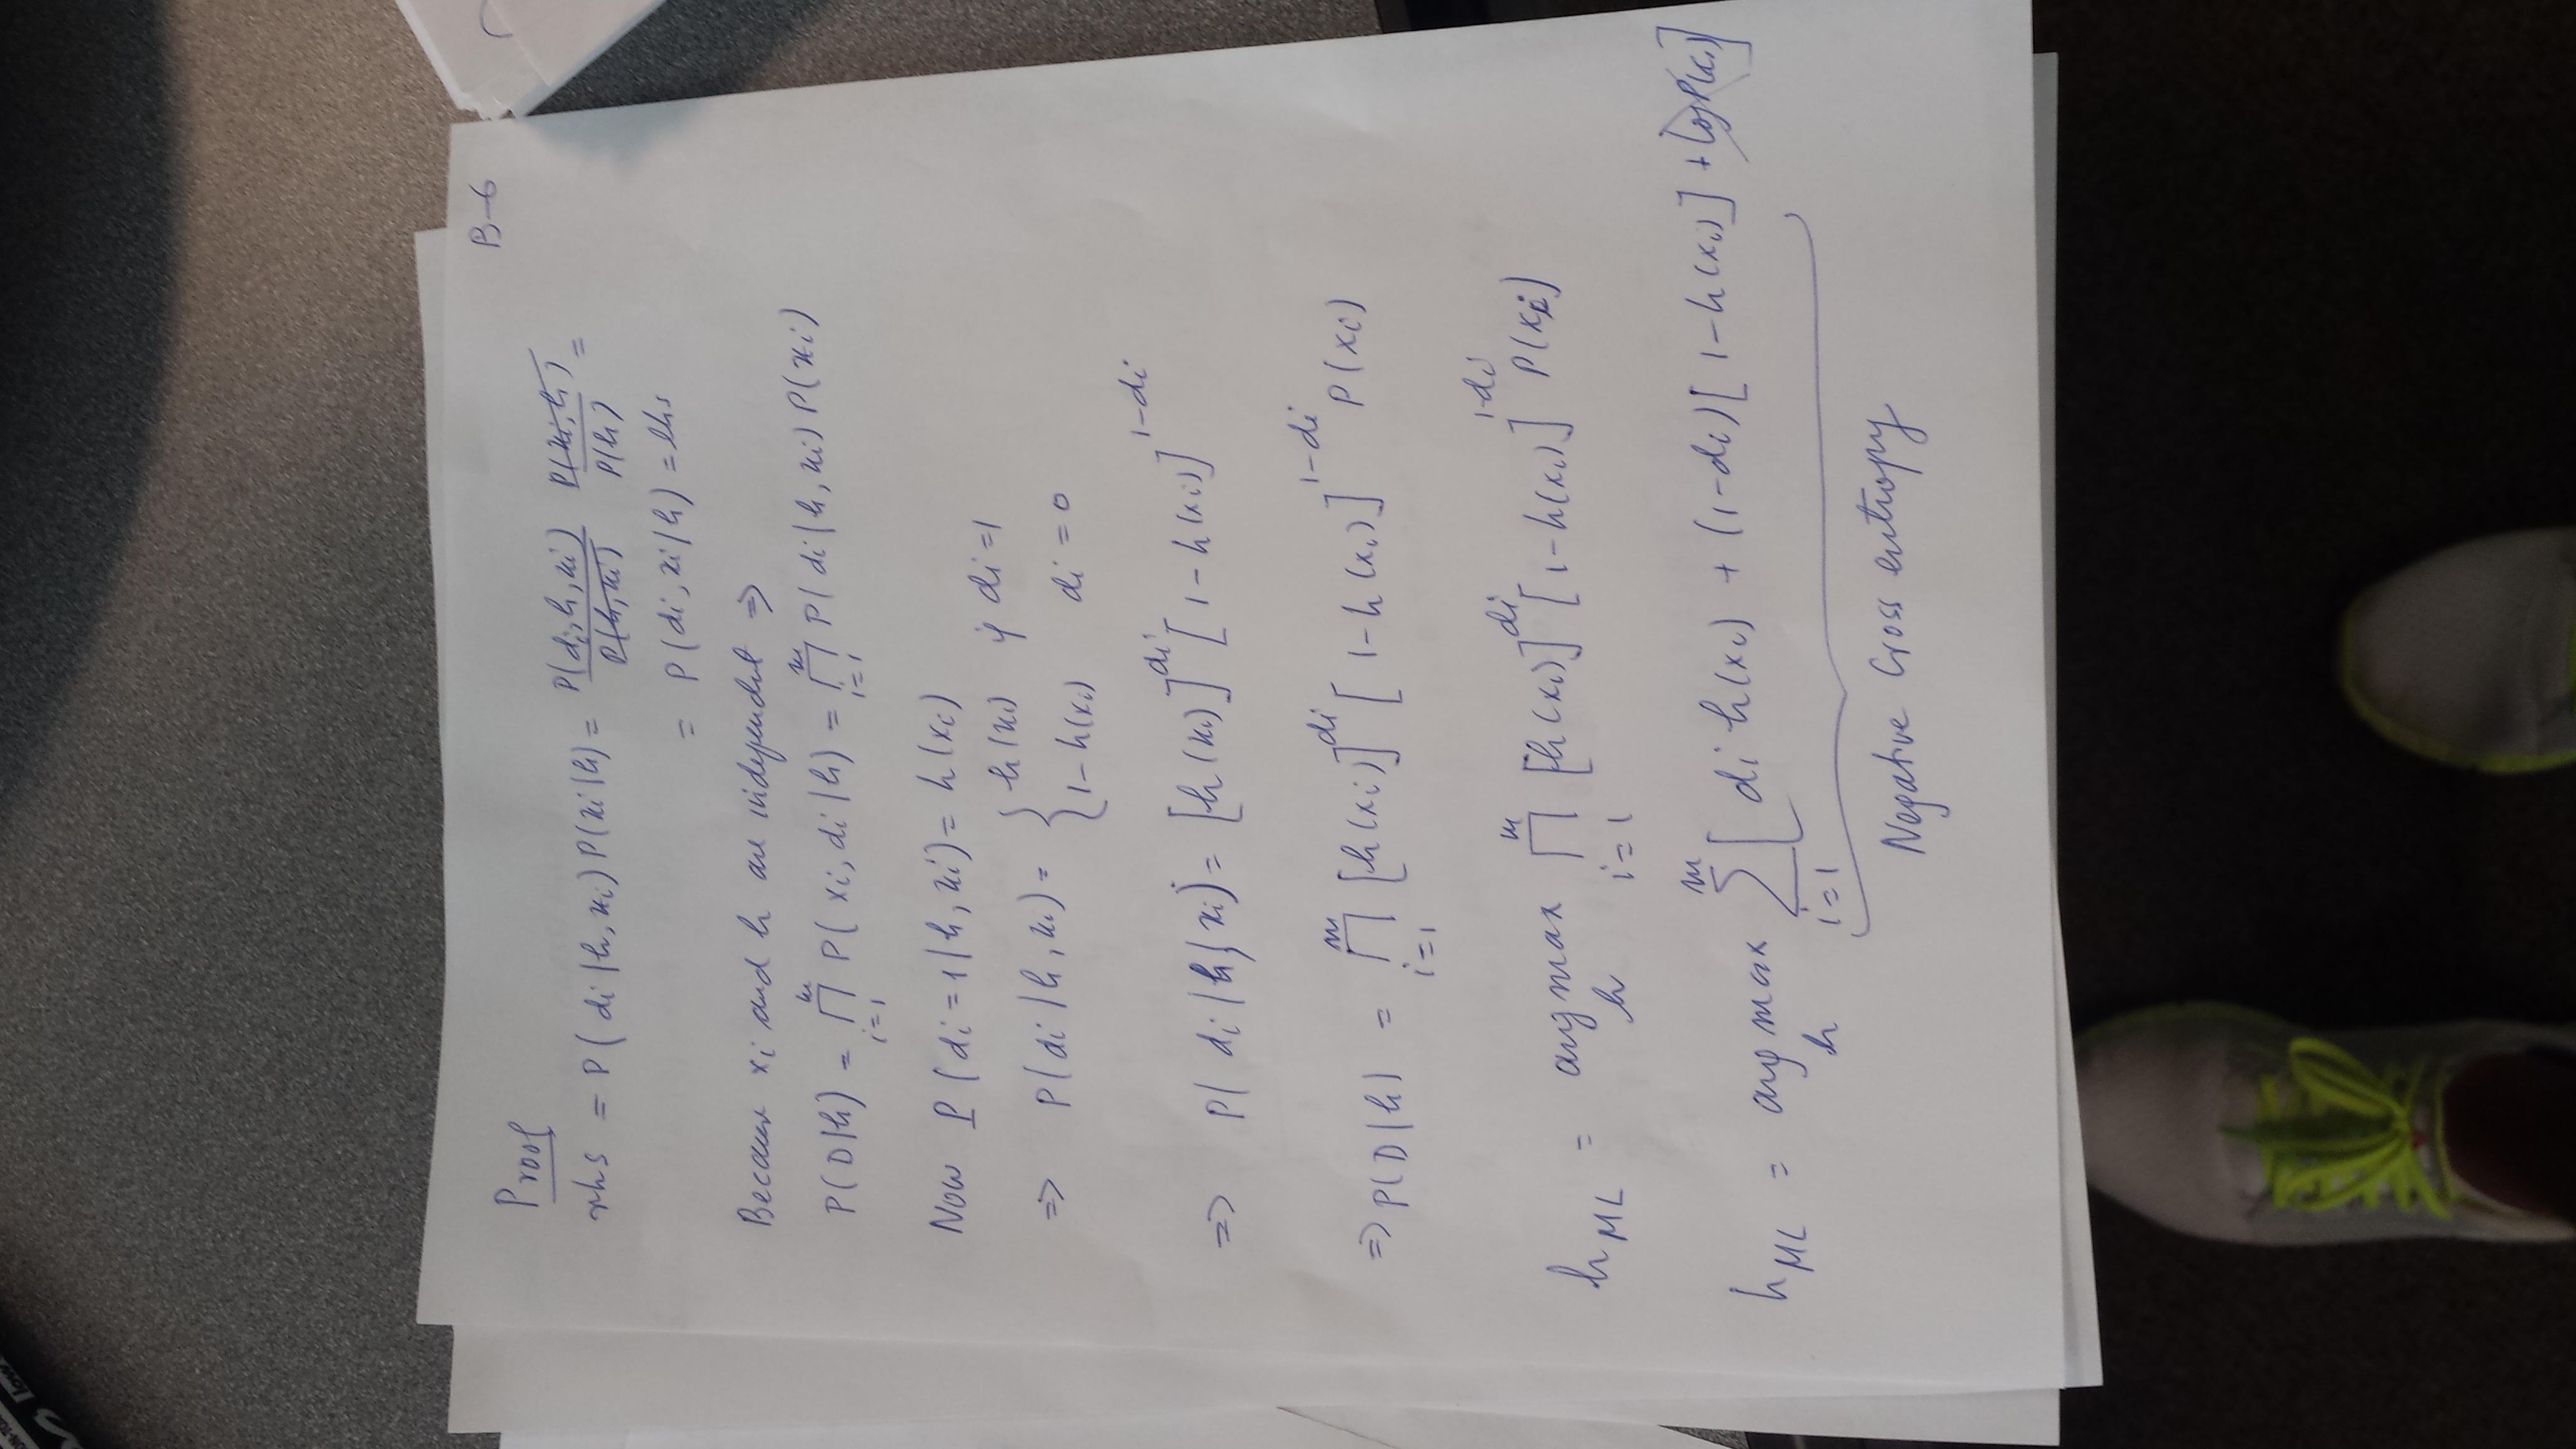 B-6
Proof
rhs = P(di|h,xi)P(xi|h) = P(di,h,xi)/P(h,xi) P(xi,h)/P(h) =
= P(di,xi|h) = lhs
Because xi and h are independent =>
P(D|h) = ∏ i=1 m P(xi,di|h) = ∏ i=1 m P(di|h,xi)P(xi)
Now P(di=1|h,xi) = h(xi)
=> P(di|h,xi) = { h(xi) if di=1
1-h(xi) di=0
=> P(di|h,xi) = [h(xi)]^di [1-h(xi)]^1-di
=> P(D|h) = ∏ i=1 m [h(xi)]^di [1-h(xi)]^1-di P(xi)
hML = arg max h ∏ i=1 m [h(xi)]^di [1-h(xi)]^1-di P(xi)
hML = arg max h ∑ i=1 m [di h(xi) + (1-di)[1-h(xi)] + log P(xi)]
Negative Cross entropy